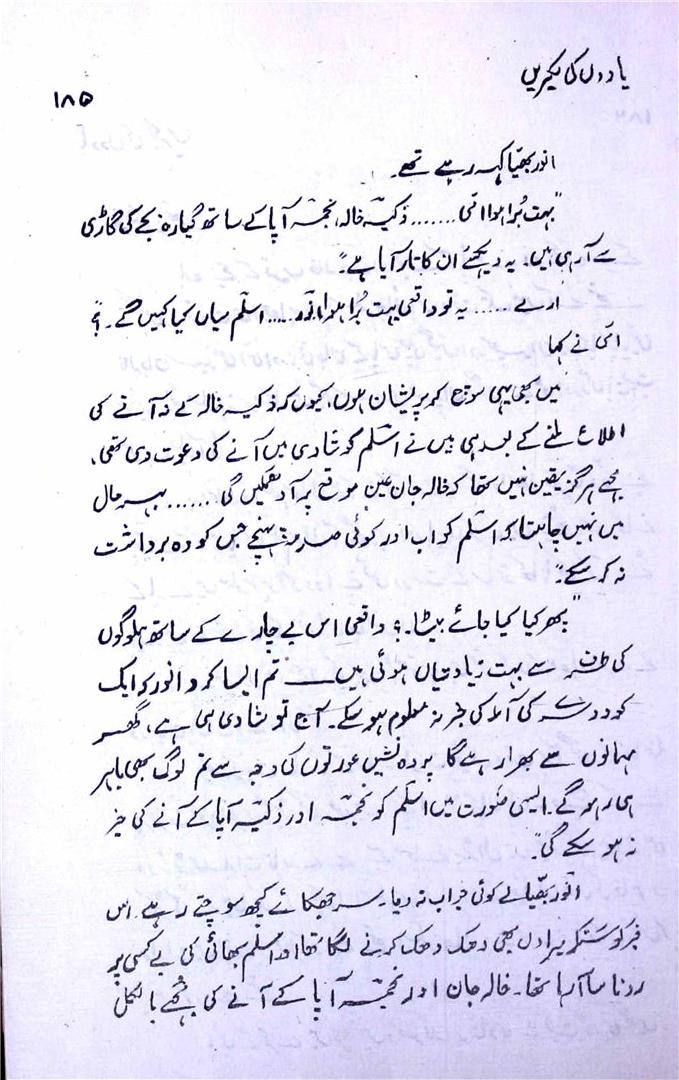 یادوں کی لکیریں
۱۸۵
انور بھیّا کہہ رہے تھے۔
"بہت بُرا ہوا امّی ....... ذکیہ خالہ، نجمہ آپا کے ساتھ گیارہ بجے کی گاڑی
سے آ رہی ہیں۔ یہ دیکھئے ان کا تار آیا ہے۔"
ارے ...... یہ تو واقعی بہت بُرا ہوا انور ..... اسلم میاں کیا کہیں گے۔ ؟"
امّی نے کہا
میں بھی یہی سوچ کر پریشان ہوں، کیوں کہ ذکیہ خالہ کے نہ آنے کی
اطلاع ملنے کے بعد ہی میں نے اسلم کو شادی میں آنے کی دعوت دی تھی،
مجھے ہرگز یقین نہیں تھا کہ خالہ جان عین موقع پر آ دھمکیں گی ....... بہر حال
میں نہیں چاہتا کہ اسلم کو اب اور کوئی صدمہ پہنچے جس کو وہ برداشت
نہ کر سکے۔"
"پھر کیا کیا جائے بیٹا۔ ؟ واقعی اس بے چارے کے ساتھ ہم لوگوں
کی طرف سے بہت زیادتیاں ہوئی ہیں ــــ تم ایسا کرو انور کہ ایک
کو دوسرے کی آمد کی خبر نہ معلوم ہو سکے۔ آج تو شادی ہی ہے، گھر
مہمانوں سے بھرا رہے گا۔ پردہ نشیں عورتوں کی وجہ سے تم لوگ بھی باہر
ہی رہو گے۔ ایسی صورت میں اسلم کو نجمہ اور ذکیہ آپا کے آنے کی خبر
نہ ہو سکے گی۔"
انور بھیّا نے کوئی جواب نہ دیا۔ سر جھکائے کچھ سوچتے رہے۔ اس
خبر کو سُنکر میرا دل بھی دھک دھک کرنے لگا تھا اور اسلم بھائی کی بے کسی پر
رونا سا آ رہا تھا۔ خالہ جان اور نجمہ آپا کے آنے کی مجھے بالکل